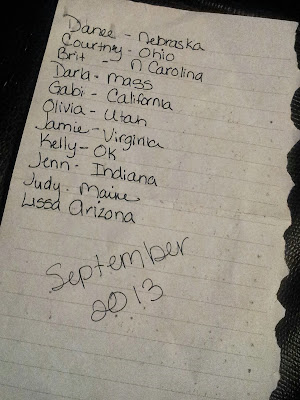 Danee - Nebraska
Courtney - Ohio
Brit - N Carolina
Darla - mass
Gabi - California
Olivia - Utah
Jamie - Virginia
Kelly - OK
Jenn - Indiana
Judy - Maine
Lissa Arizona
September
2013